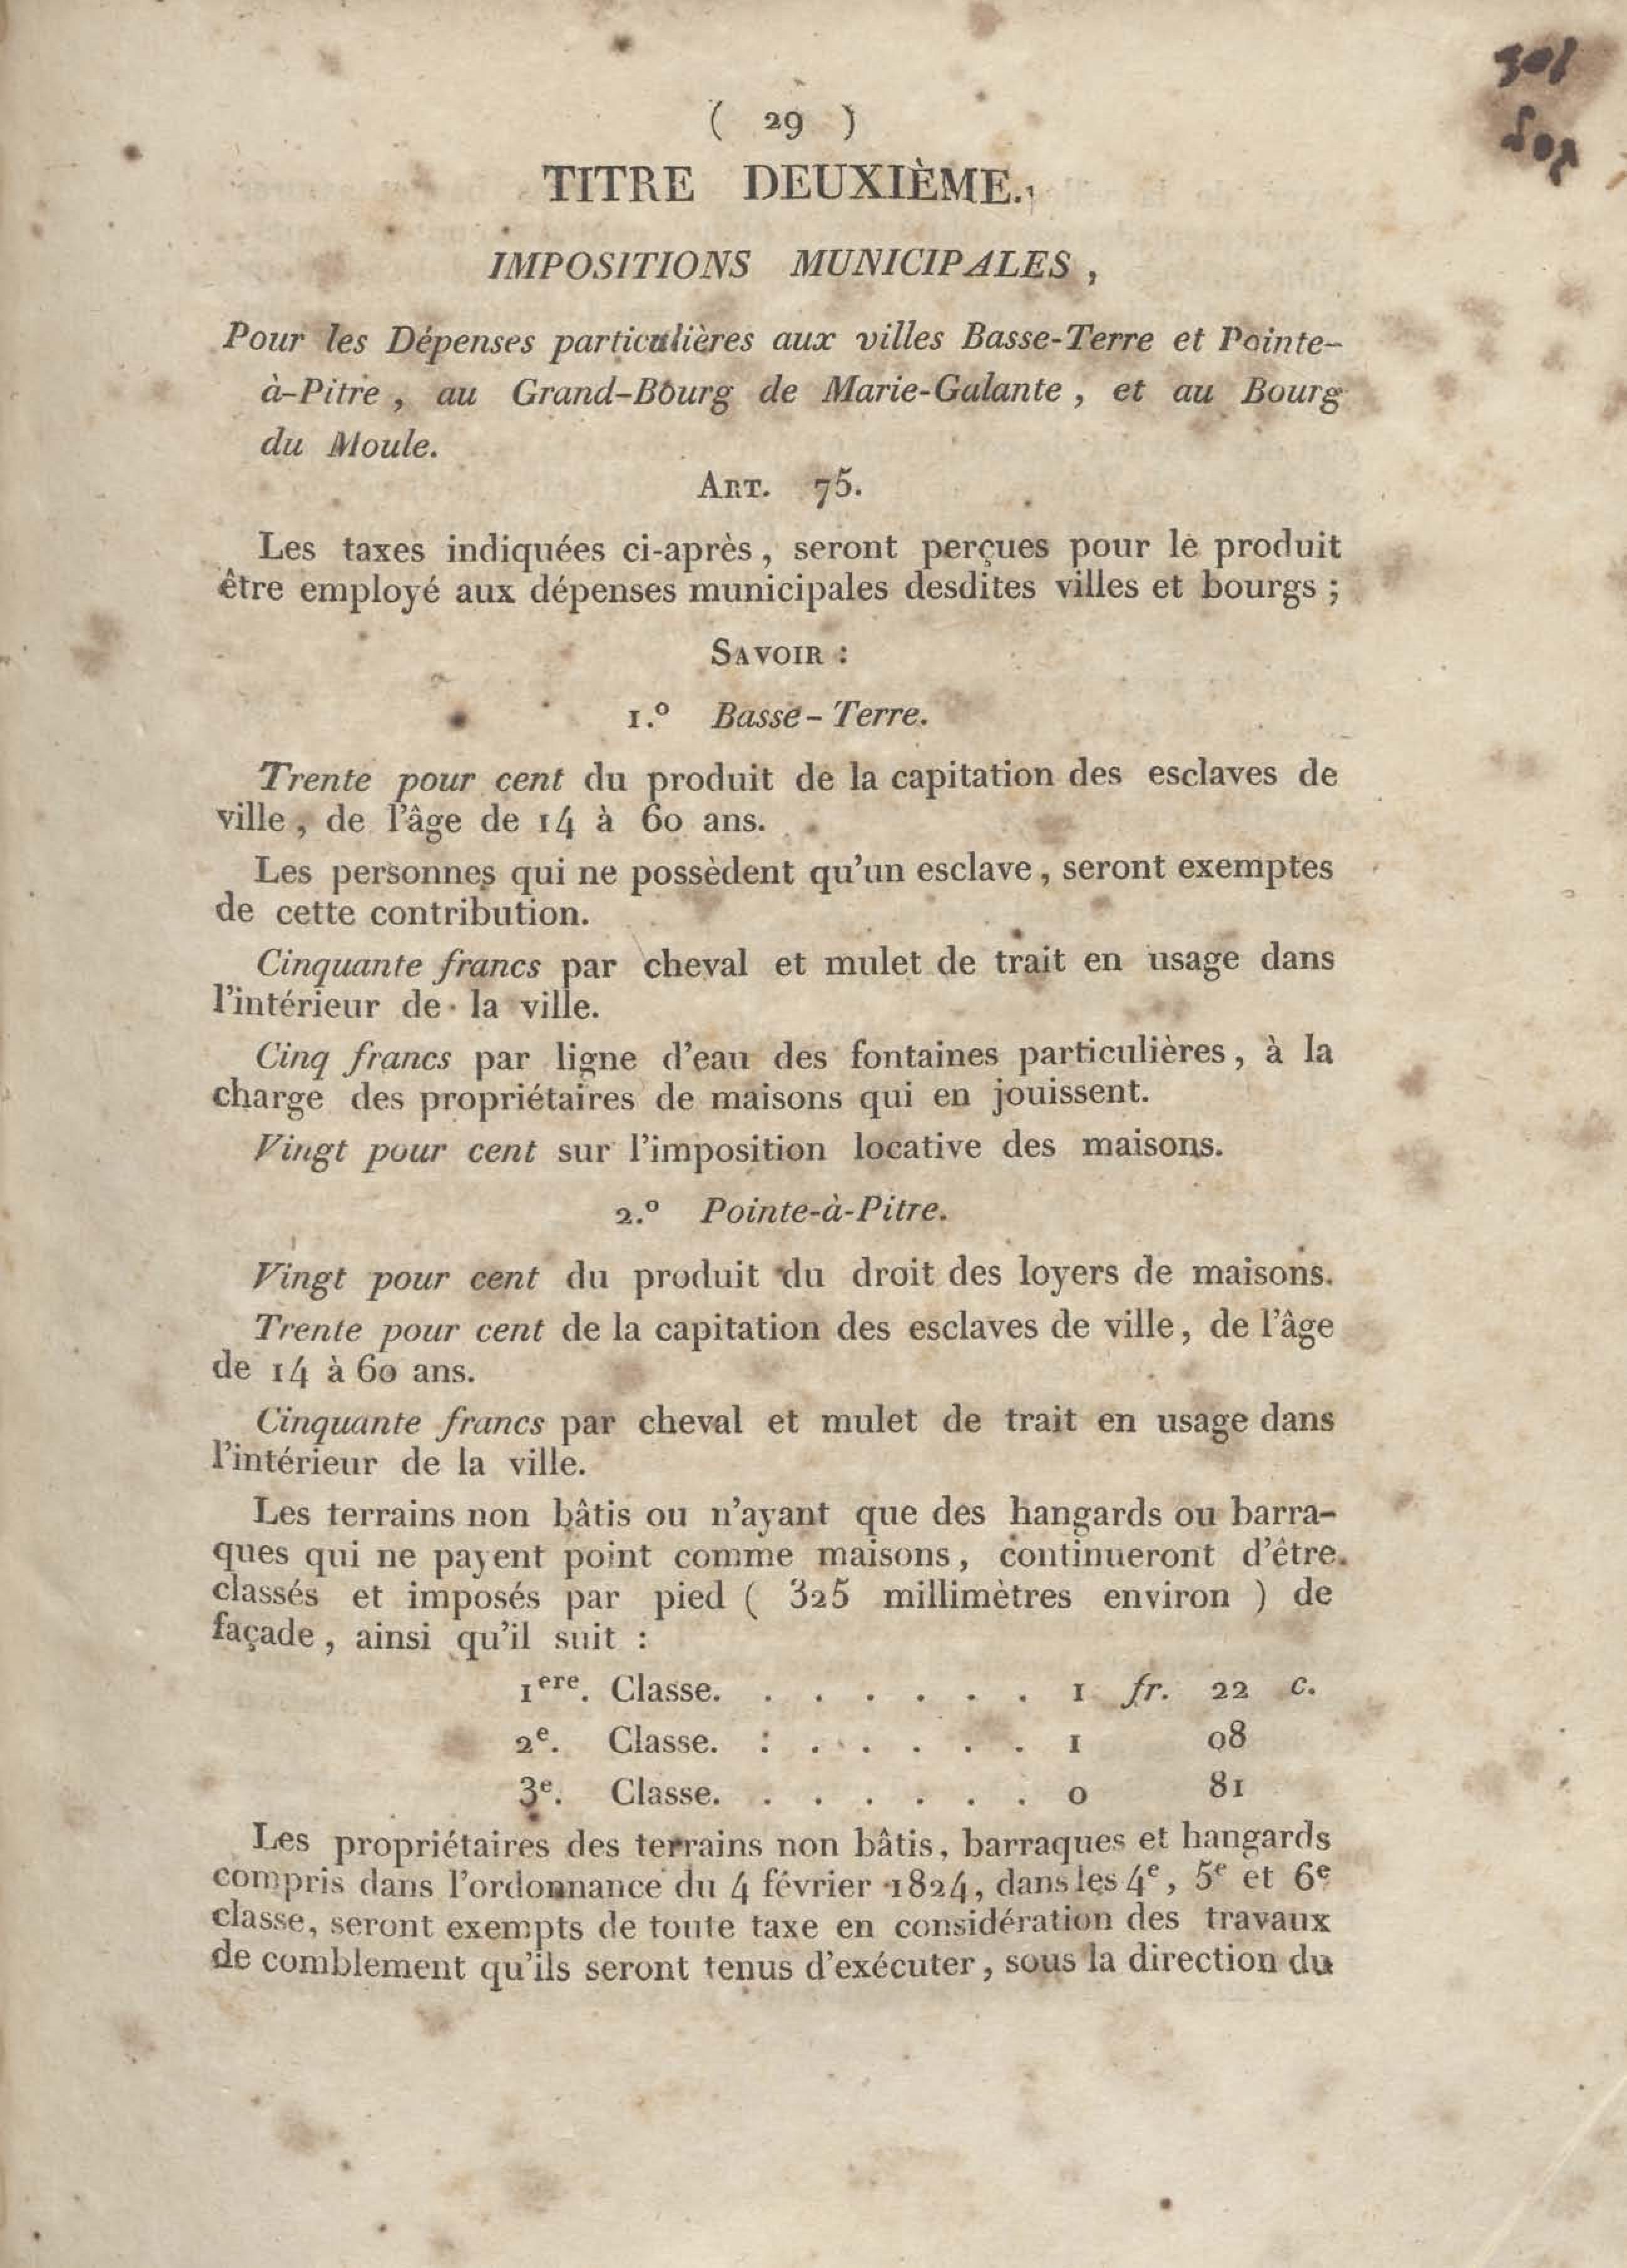 ( 29 )
TITRE DEUXIÈME.
IMPOSITIONS MUNICIPALES ,
Pour les Dépenses particulières aux villes Basse-Terre et Pointe-
à-Pitre , au Grand-Bourg de Marie-Galante , et au Bourg
du Moule.
ART. 75.
Les taxes indiquées ci-après , seront perçues pour le produit
être employé aux dépenses municipales desdites villes et bourgs ;
SAVOIR :
1.º Basse-Terre.
Trente pour cent du produit de la capitation des esclaves de
ville , de l'âge de 14 à 60 ans.
Les personnes qui ne possèdent qu'un esclave , seront exemptes
de cette contribution.
Cinquante francs par cheval et mulet de trait en usage dans
l'intérieur de la ville.
Cinq francs par ligne d'eau des fontaines particulières , à la
charge des propriétaires de maisons qui en jouissent.
Vingt pour cent sur l'imposition locative des maisons.
2.º Pointe-à-Pitre.
Vingt pour cent du produit du droit des loyers de maisons.
Trente pour cent de la capitation des esclaves de ville , de l'âge
de 14 à 60 ans.
Cinquante francs par cheval et mulet de trait en usage dans
l'intérieur de la ville.
Les terrains non bâtis ou n'ayant que des hangards ou barra-
ques qui ne payent point comme maisons , continueront d'être
classés et imposés par pied ( 325 millimètres environ ) de
façade , ainsi qu'il suit :
1ere. Classe. . . . . . . . 1 fr. 22 c.
2e. Classe. : . . . . . . 1 08
3e. Classe. . . . . . . . 0 81
Les propriétaires des terrains non bâtis, barraques et hangards
compris dans l'ordonnance du 4 février 1824, dans les 4e , 5e et 6e
classe, seront exempts de toute taxe en considération des travaux
de comblement qu'ils seront tenus d'exécuter , sous la direction du